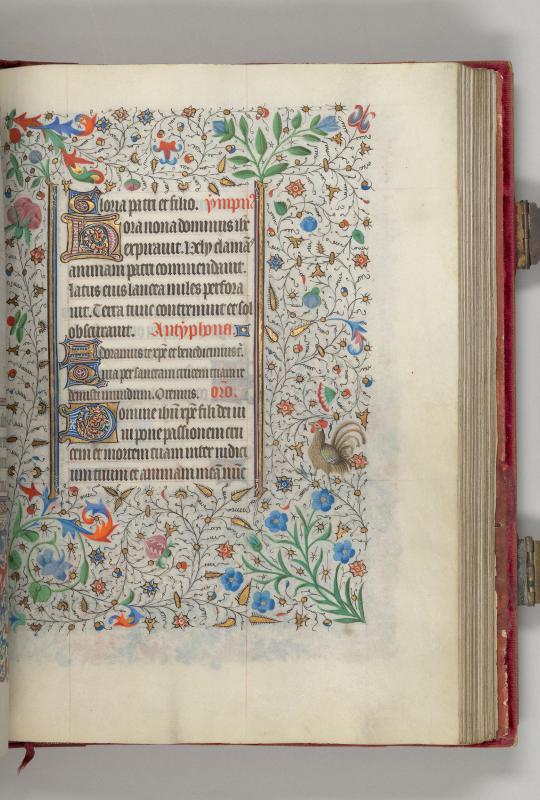 Gloria patri et filio. ympn9
Hora nona dominus ihc
expirauit. Hely clamās
animam patri commendauit.
Latus eius lancea miles perfora
uit. Terra tunc contremuit et sol
obscurauit. Antyphona
Adoramus te xpē et benedicimus t.
Quia per sanctam crucem tuam re
demisti mundum. Oremus. orō.
Domine ihū xpē fili dei ui
ui pone passionem cru
cem et mortem tuam inter iudici
um tuum et animam meā nūc